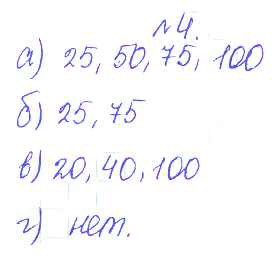 №4.
а) 25, 50, 75, 100
б) 25, 75
в) 20, 40, 100
г) нет.